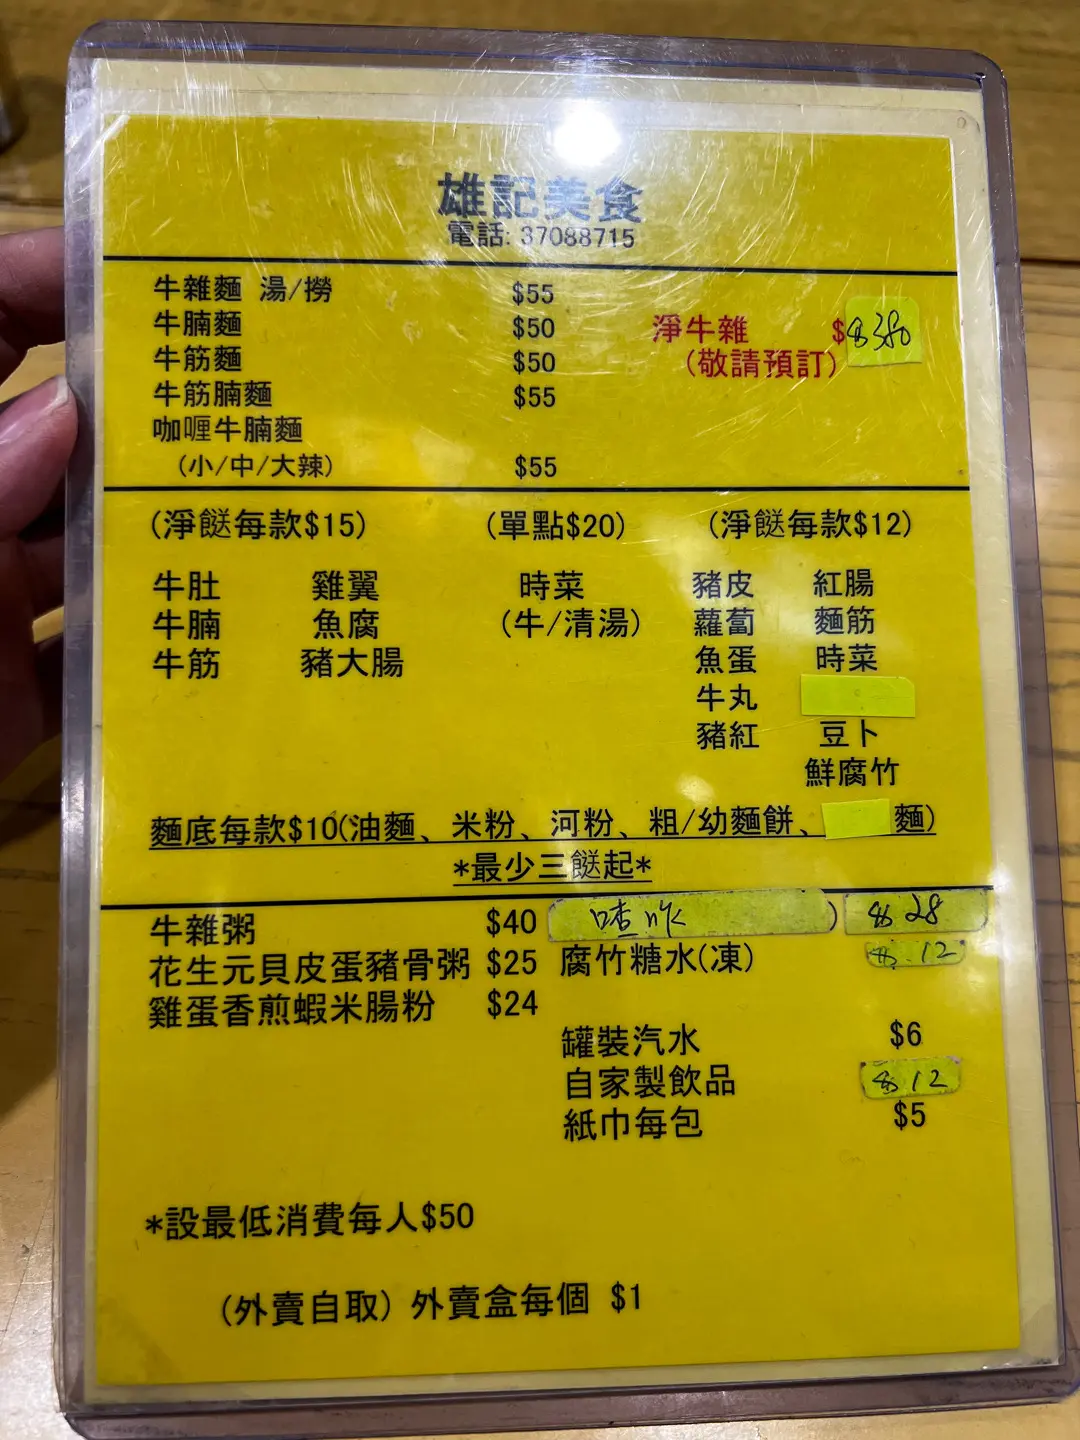 雄記美食
電話: 37088715
牛雜麵 湯/撈 $55
牛腩麵 $50
牛筋麵 $50
牛筋腩麵 $55
咖喱牛腩麵
(小/中/大辣) $55
淨牛雜 $ $380
(敬請預訂)
(淨餸每款$15) (單點$20) (淨餸每款$12)
牛肚 雞翼 時菜 豬皮 紅腸
牛腩 魚腐 (牛/清湯)蘿蔔 麵筋
牛筋 豬大腸 魚蛋 時菜
牛丸
豬紅 豆卜
鮮腐竹
麵底每款$10(油麵、米粉、河粉、粗/幼麵餅、 麵)
*最少三餸起*
牛雜粥 $40 喳咋 ) $28
花生元貝皮蛋豬骨粥 $25 腐竹糖水(凍) $12
雞蛋香煎蝦米腸粉 $24
罐裝汽水 $6
自家製飲品 $12
紙巾每包 $5
*設最低消費每人$50
(外賣自取) 外賣盒每個 $1